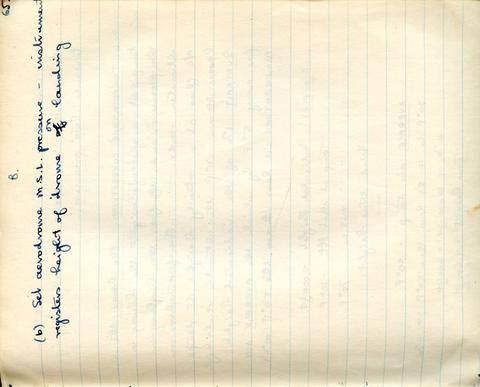 65
B.
(b) Set aerodrome M.S.L. pressure - instrument
registers height of drome on landing